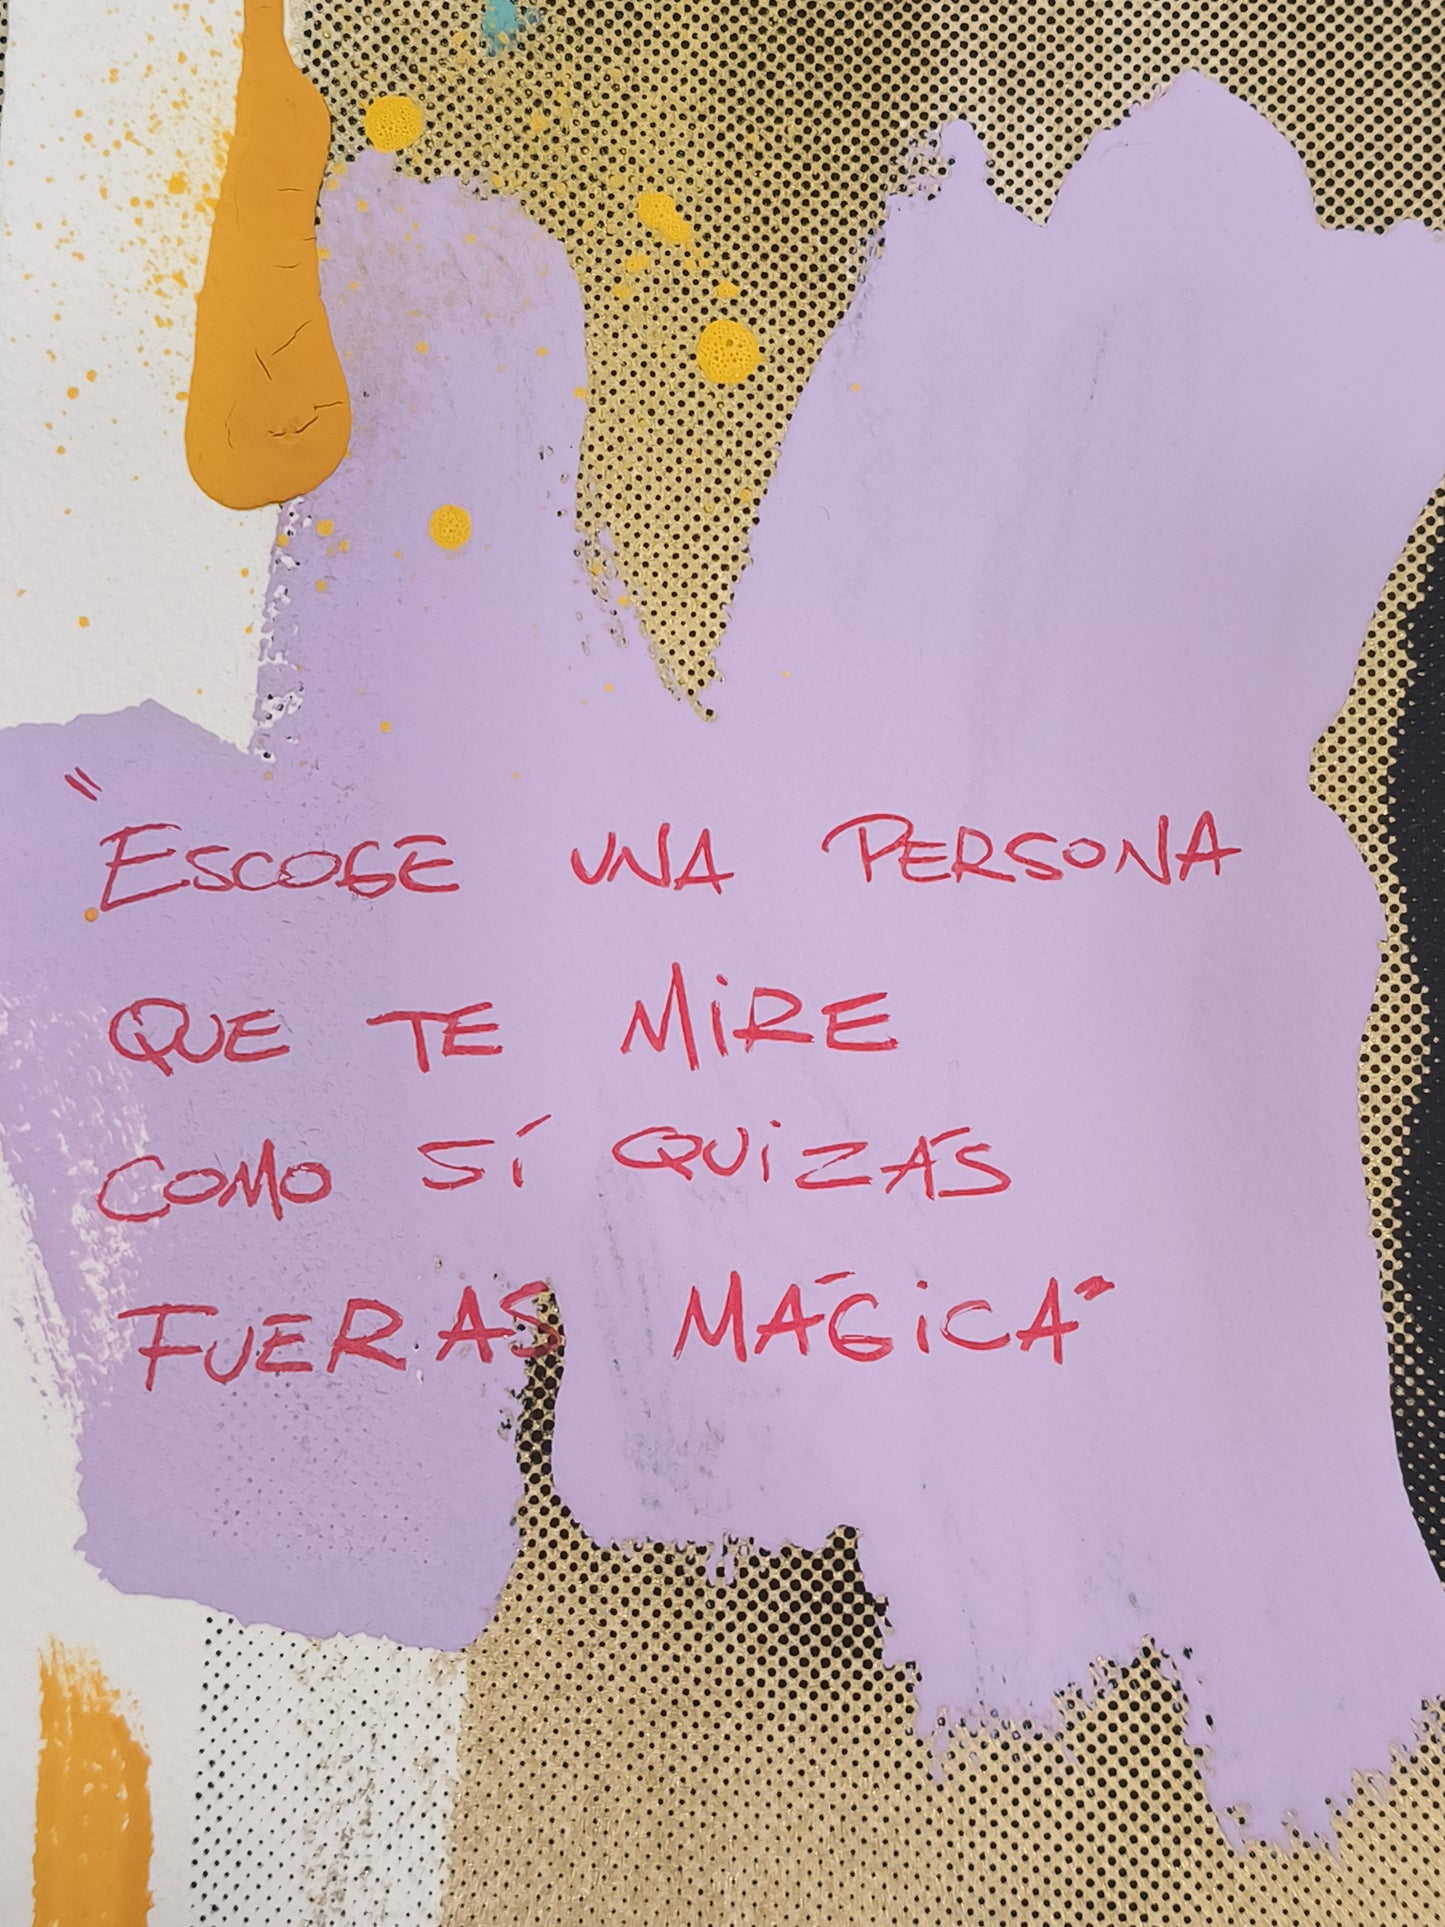 "ESCOGE UNA PERSONA
QUE TE MIRE
COMO SÍ QUIZÁS
FUERAS MÁGICA"